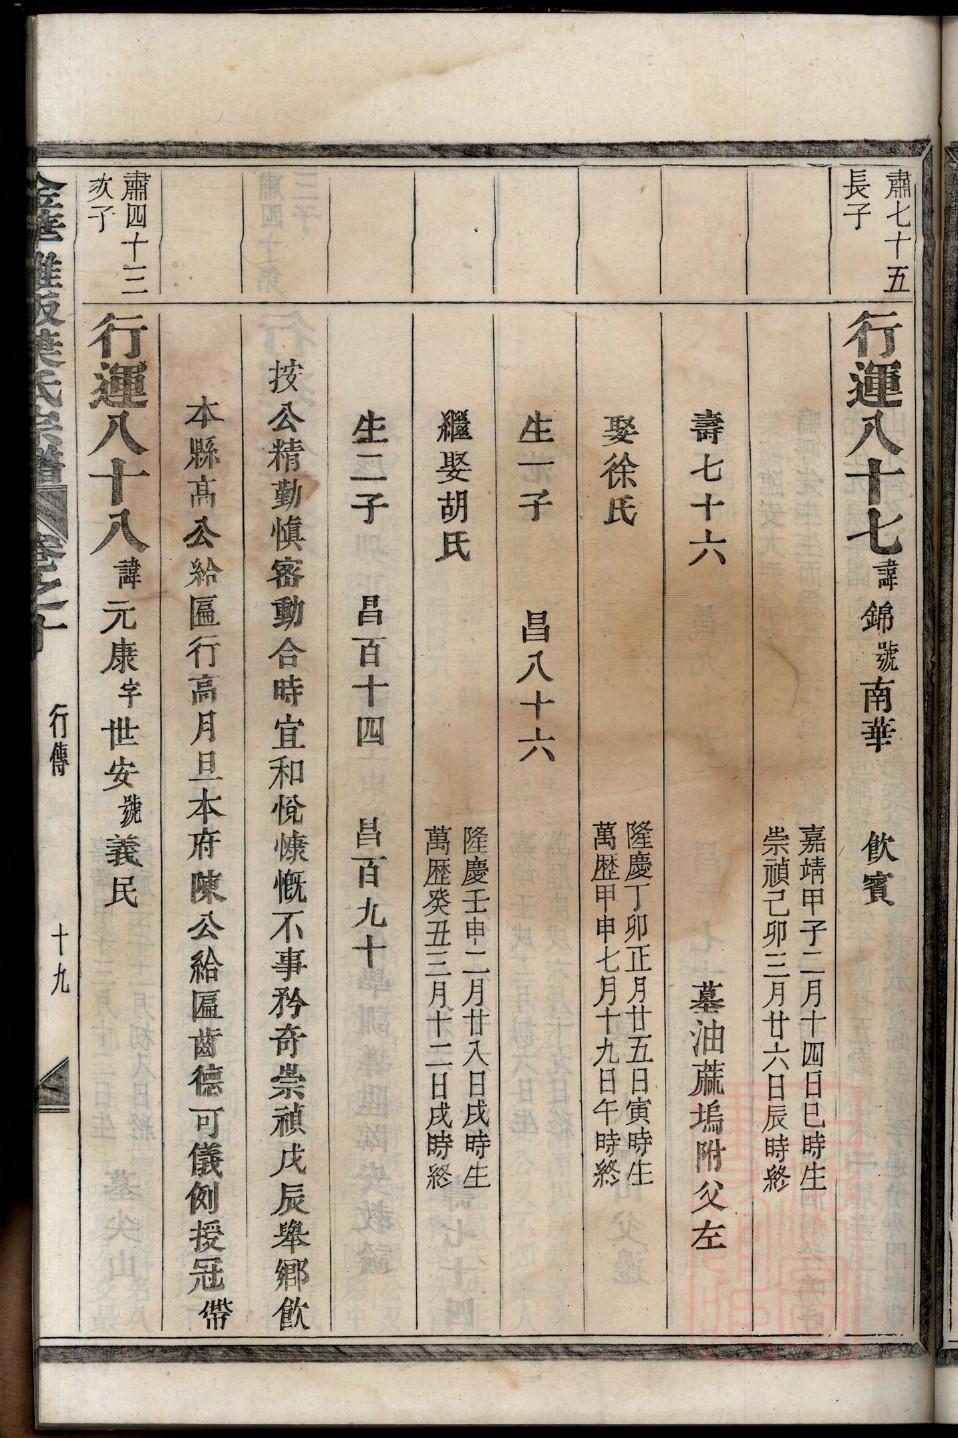 肅七十五
長子
行運八十七諱錦號南華　飲賓
嘉靖甲子二月十四日巳時生
崇禎己卯三月廿六日辰時終
壽七十六　墓油蔴塢附父左
娶徐氏
隆慶丁卯正月廿五日寅時生
萬歷甲申七月十九日午時終
生一子　昌八十六
繼娶胡氏
隆慶壬申二月廿八日戌時生
萬歷癸丑三月十二日戌時終
生二子　昌百十四　昌百九十
按公精勤愼密動合時宜和悅慷慨不事矜奇崇禎戊辰舉鄉飲
本縣高公給匾行高月旦本府陳公給匾齒德可儀例授冠帶
肅四十三
次子
行運八十八諱元康字世安號義民
金華雅畈葉氏宗譜　卷之十　行傳　十九